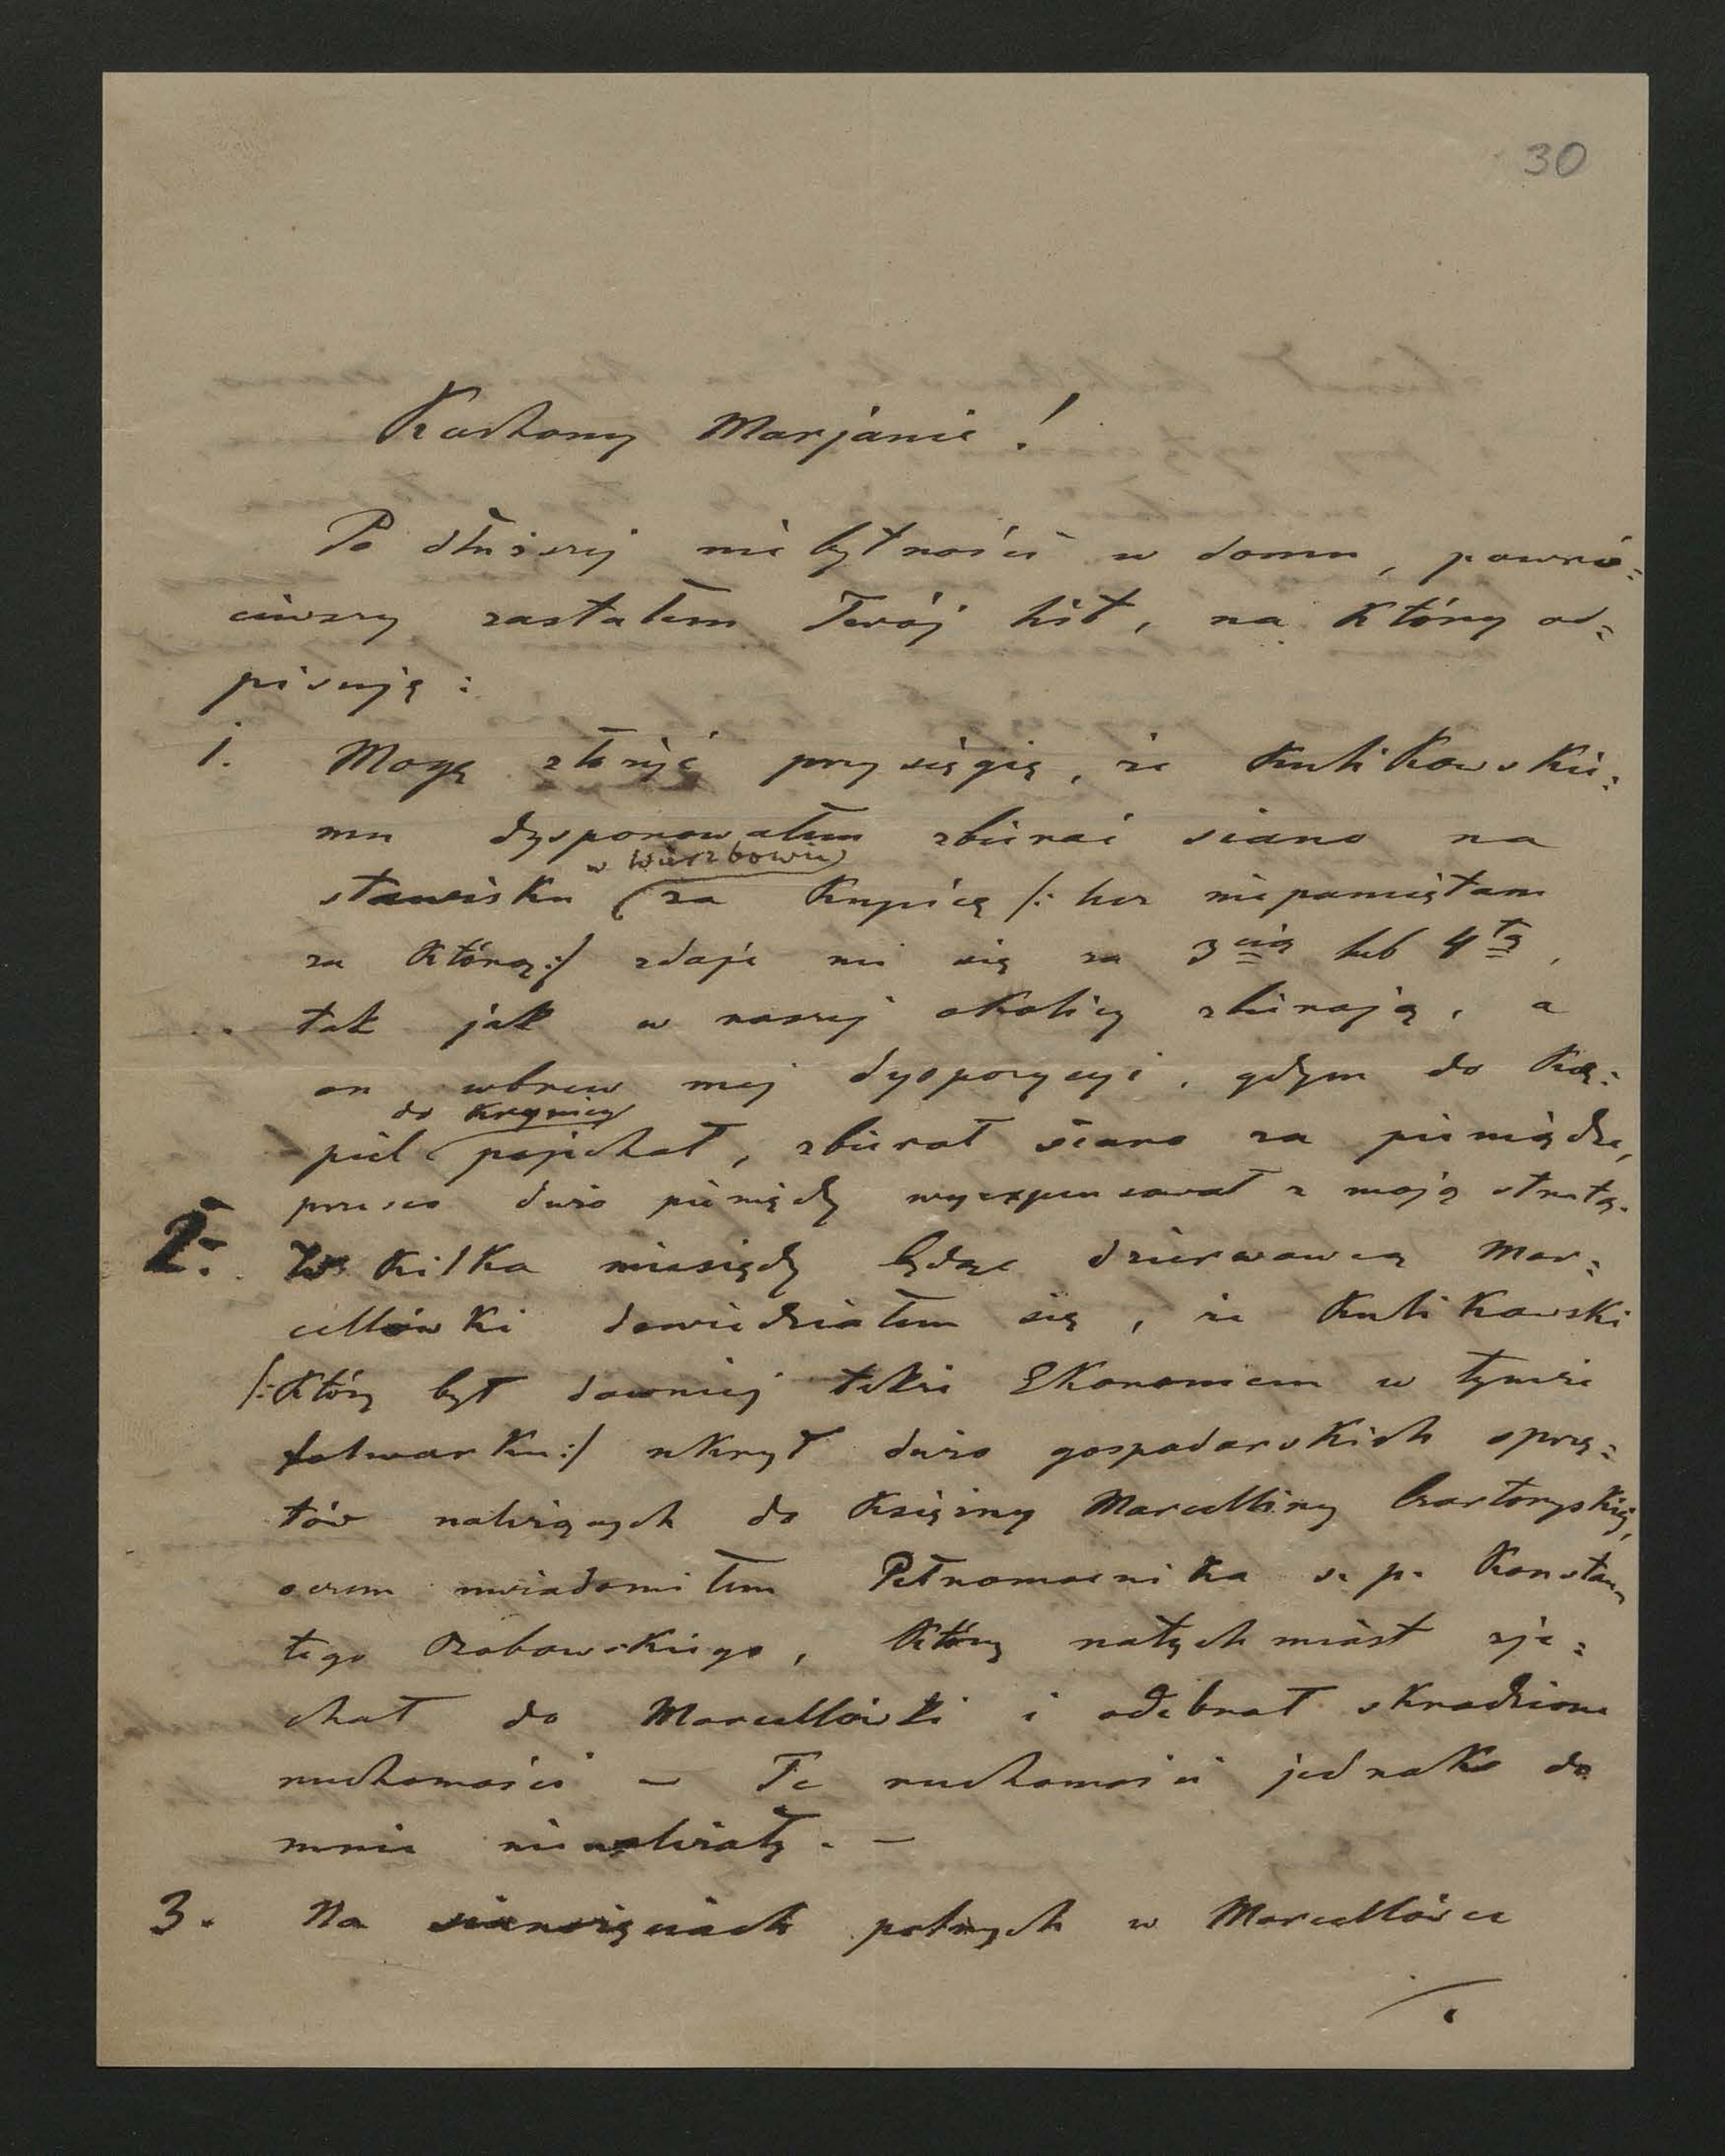 30
Kochany Marjanie!
Po dłuższej niebytności w domu, powró=
ciwszy zastałem Twój list, na który od=
pisuję:
1. Mogę złożyć przysięgię, że Kulikowskie=
mu dysponowałem zbierać siano na
w Wierzbowie
stawisku za kupicę /: lecz niepamiętam
za którą:/ zdaje mi się za 3cią lub 4tą,
tak jak w naszej okolicy zbierają, a
on wbrew mej dyspozycyi, gdym do Ką=
do Krynicy
piel pojechał, zbierał siano za pieniądze,
przez co dużo pieniędzy wyexpensował z moją stratą.
2. W kilka miesięcy będąc dzierżawcą Mar=
cellówki dowiedziałem się, że Kulikowski
/: który był dawniej także Ekonomem w tymże
folwarku:/ ukrył dużo gospodarskich sprzę=
tów należących do Księżny Marcelliny Czartoryskiej,
o czem uwiadomiłem Pełnomocnika ś. p. Konstan
tego Bobowskiego, który natychmiast zje=
chał do Marcellówki i odebrał skradzione
ruchomości — Te ruchomości jednako do
mnie nienależały. —
3. Na sianożęciach polnych w Marcellówce
./.